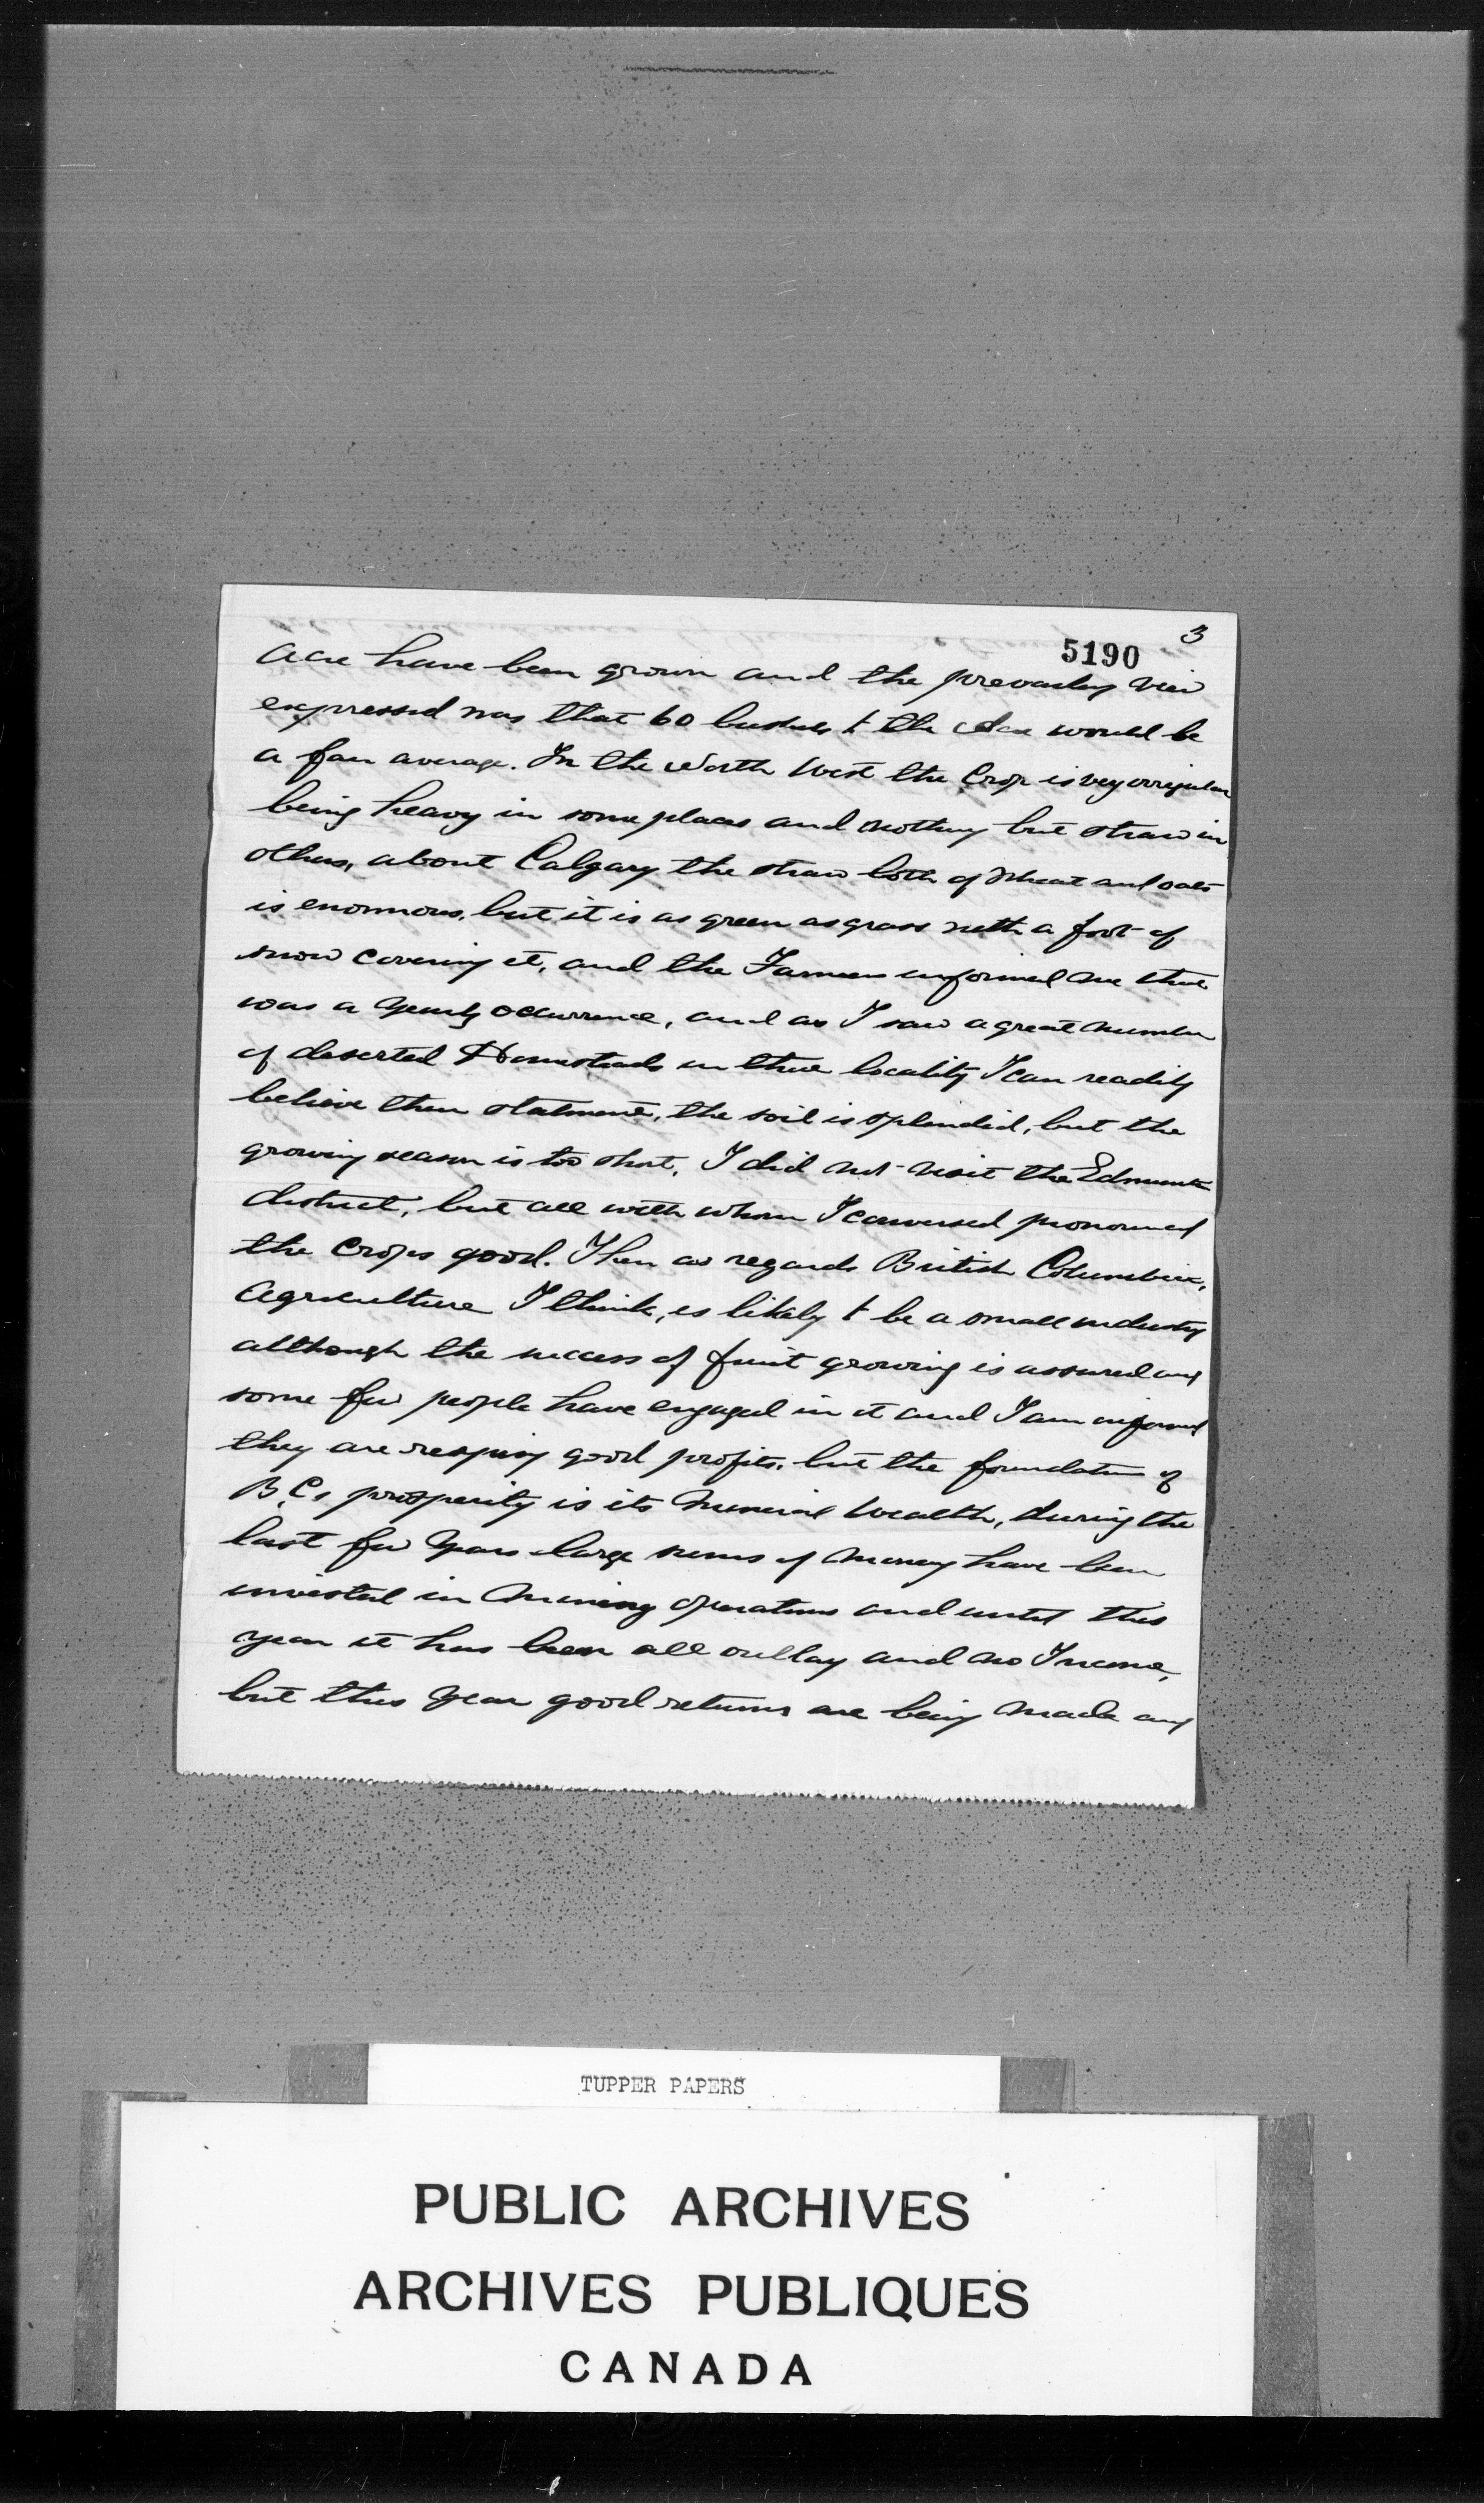 3
5190
Acre have been grown and the prevailing view
expressed was that 60 bushels to the Acre would be
a fair average. In the North West the Crop is very irregular
being heavy in some places and nothing but straw in
others, about Calgary the straw both of Wheat and oats
is enormous, but it is as green as grass with a foot of
snow covering it, and the Farmers informed me that
was a yearly occurrence, and as I saw a great number
of deserted Homesteads in that locality I can readily
believe their statement, the soil is splendid, but the
growing season is too short. I did not visit the Edmonton
district, but all with whom I conversed pronounced
the Crops good. Then as regards British Columbia,
Agriculture I think, is likely to be a small industry
although the success of fruit growing is assured and
some few people have engaged in it and I am informed
they are reaping good profits, but the foundation of
B.C.s prosperity is its Mineral Wealth, during the
last few years large sums of money have been
invested in Mining operations and until this
year it has been all outlay and no Income,
but this year good returns are being made and
TUPPER PAPERS
PUBLIC ARCHIVES
ARCHIVES PUBLIQUES
CANADA